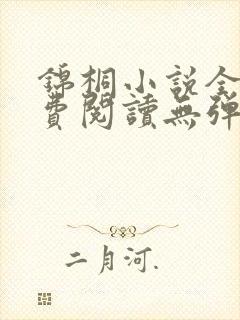 錦桐小說全
費閱讀無彈
二月河.